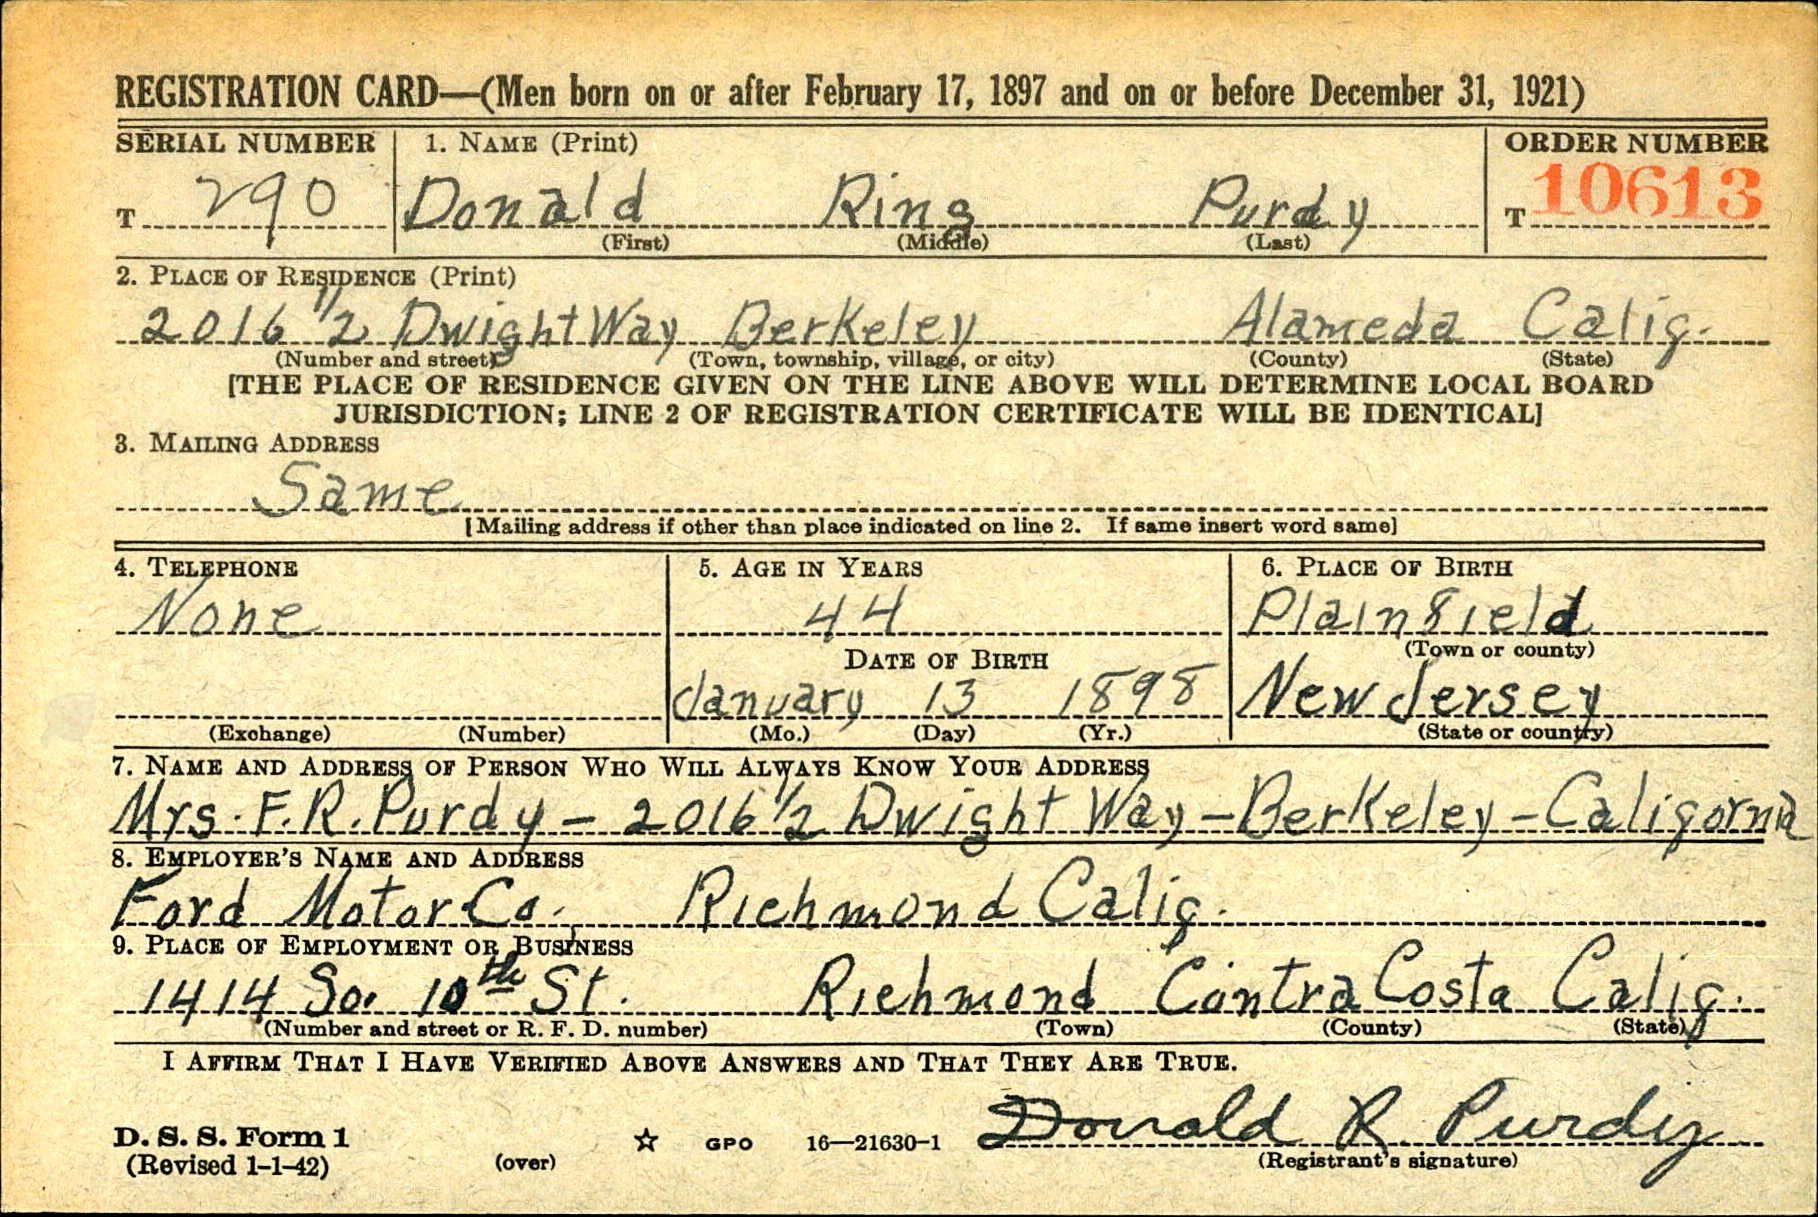 REGISTRATION CARD—(Men born on or after February 17, 1897 and on or before December 31, 1921)
SERIAL NUMBER 1. NAME (Print) ORDER NUMBER
T 290 Donald Ring Purdy T 10613
(First) (Middle) (Last)
2. PLACE OF RESIDENCE (Print)
2016 1/2 Dwight Way Berkeley Alameda Calif.
(Number and street) (Town, township, village, or city) (County) (State)
[THE PLACE OF RESIDENCE GIVEN ON THE LINE ABOVE WILL DETERMINE LOCAL BOARD
JURISDICTION; LINE 2 OF REGISTRATION CERTIFICATE WILL BE IDENTICAL]
3. MAILING ADDRESS
Same
[Mailing address if other than place indicated on line 2. If same insert word same]
4. TELEPHONE 5. AGE IN YEARS 6. PLACE OF BIRTH
None 44 Plainfield
(Town or county)
DATE OF BIRTH
January 13 1898 New Jersey
(Exchange) (Number) (Mo.) (Day) (Yr.) (State or country)
7. NAME AND ADDRESS OF PERSON WHO WILL ALWAYS KNOW YOUR ADDRESS
Mrs. F. R. Purdy – 2016 1/2 Dwight Way – Berkeley – California
8. EMPLOYER'S NAME AND ADDRESS
Ford Motor Co. Richmond Calif.
9. PLACE OF EMPLOYMENT OR BUSINESS
1414 So. 10th St. Richmond Contra Costa Calif.
(Number and street or R. F. D. number) (Town) (County) (State)
I AFFIRM THAT I HAVE VERIFIED ABOVE ANSWERS AND THAT THEY ARE TRUE.
Donald R. Purdy
D. S. S. Form 1 GPO 16—21630-1
(Revised 1-1-42) (over) (Registrant's signature)